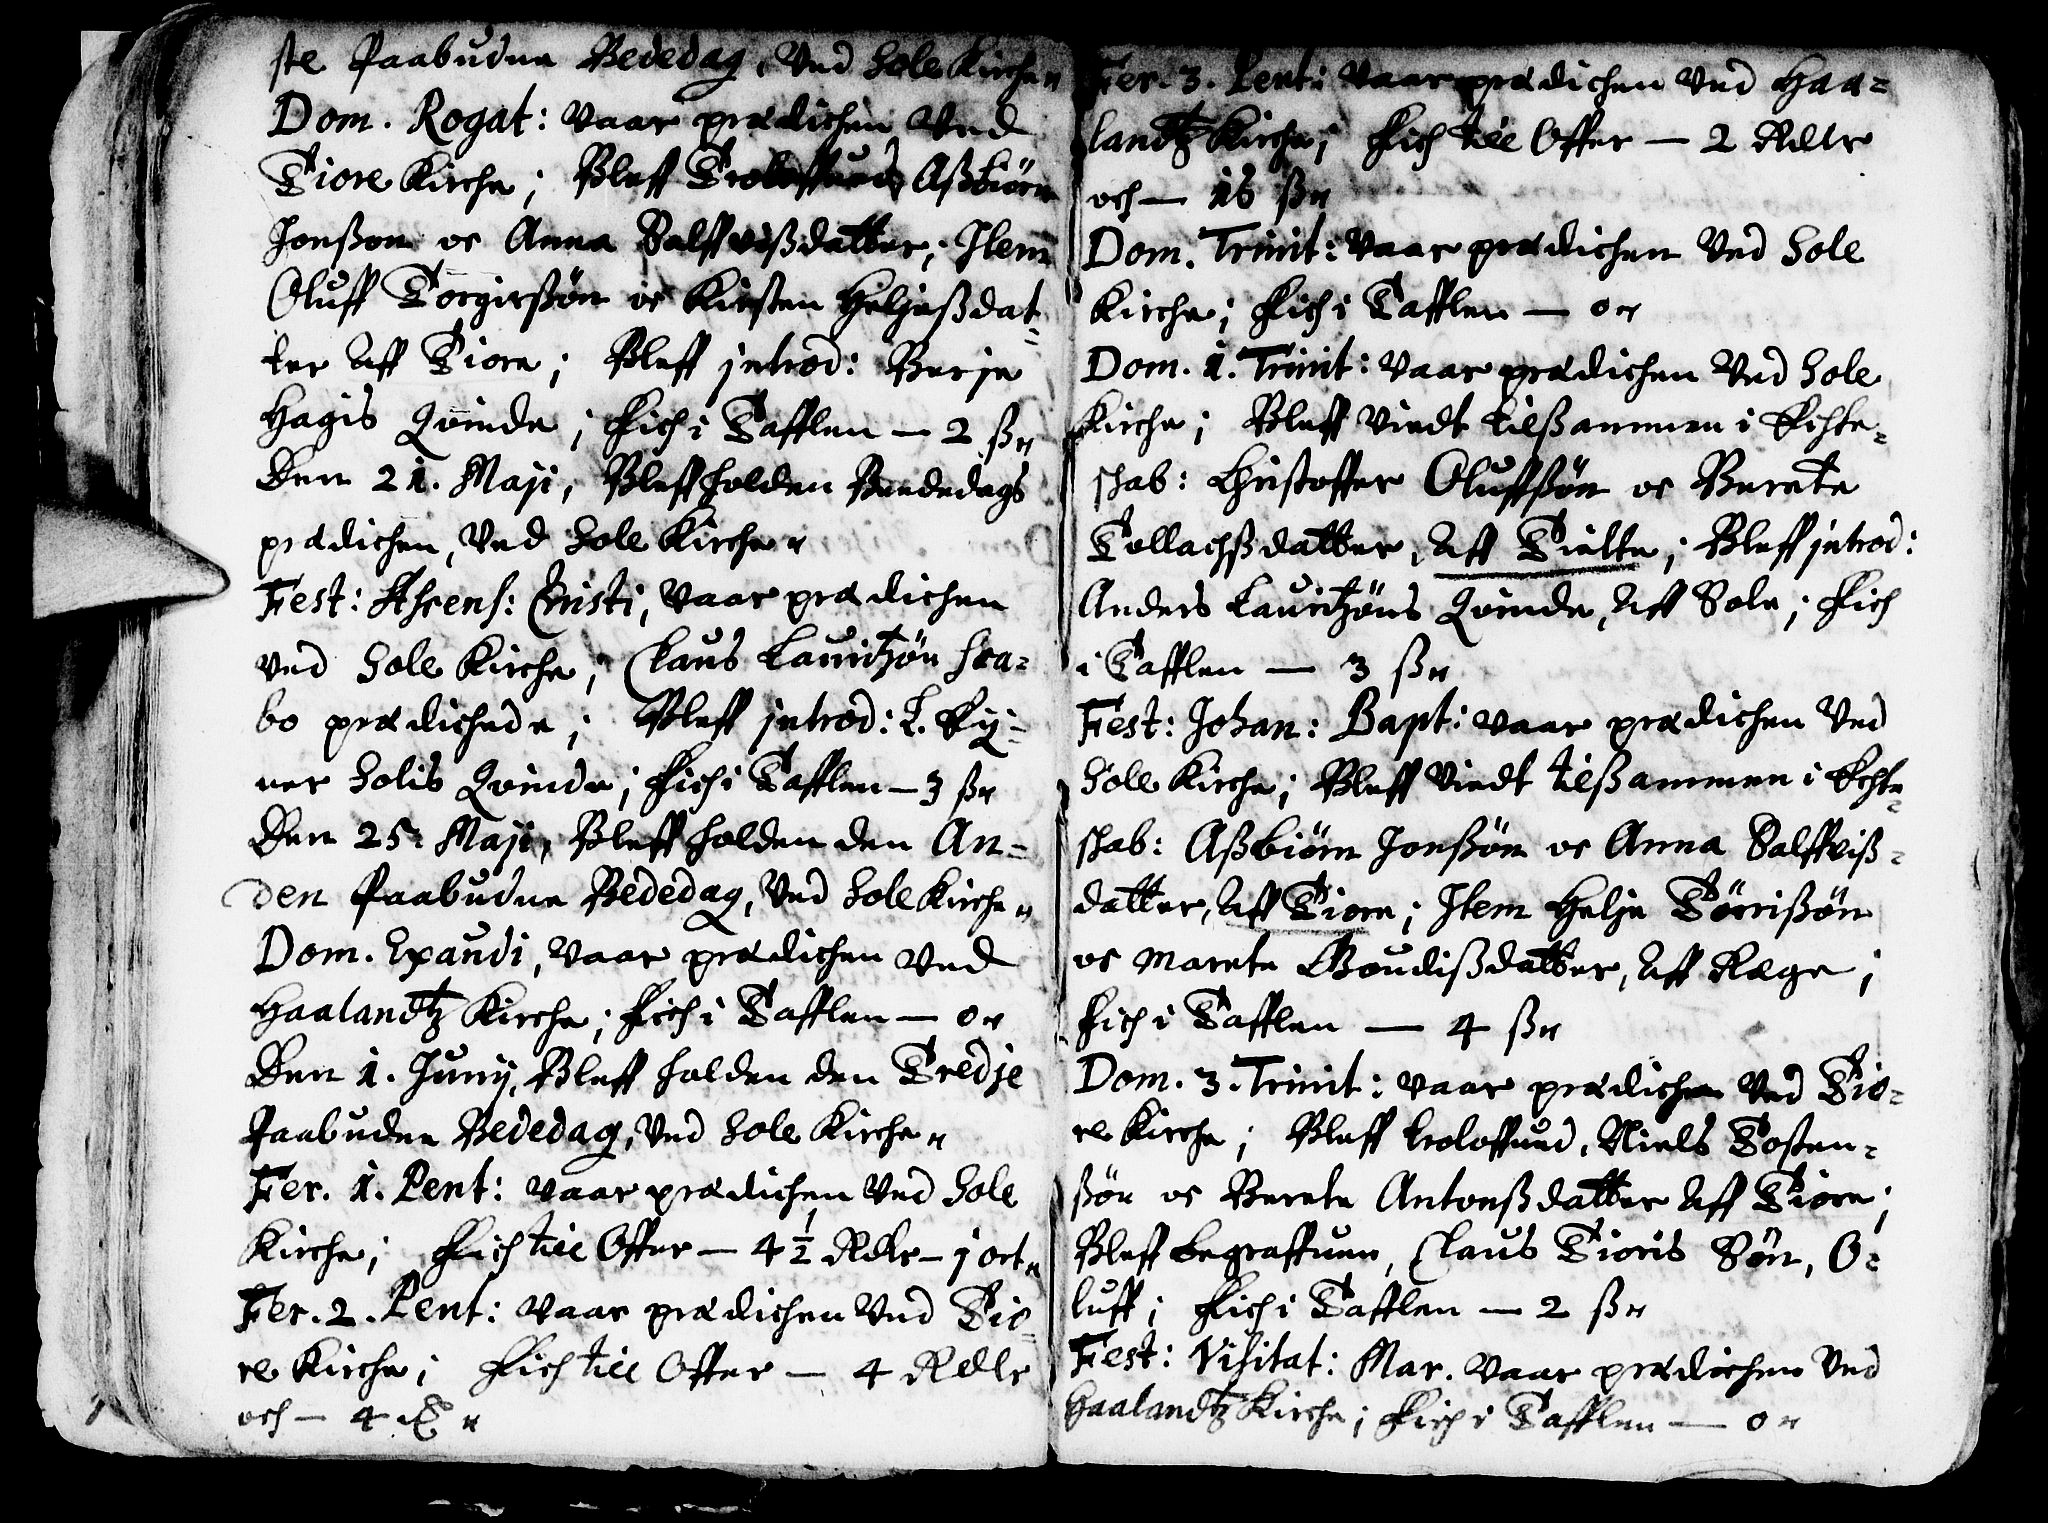 ste Paabudne Bededag, Ved Sole Kirche„
Dom. Rogat: Vaar prædichen Ved
Tiore Kirche; Bleff Troloffued Aßbiörn
Jonßon oc Anna Salffvißdatter; Item
Oluff Torgierßön oc Kirsten Heljeßdat-
ter Aff Tiore; Bleff introd: Berje
Hagis Qvinde; Fich i Tafflen — 2 ß„
Den 21. Maji, Bleff holden Beededags
prædichen, Ved Sole Kirche„
Fest: Ascens: Christi, Vaar prædichen
Ved Sole Kirche; Claus Lauritzön Sca-
bo prædichede; Bleff introd: L. Ey-
ner Solis Qvinde; Fich i Tafflen — 3 ß„
Den 25. Maji, Bleff holden den An-
den Paabudne Bededag, Ved Sole Kirche„
Dom. Exaudi, Vaar prædichen Ved
Haalandtz Kirche; Fich i Tafflen — 0„
Den 1. Junij, Bleff holden den Tredje
Paabudne Bededag, Ved Sole Kirche„
Fer. 1. Pent: Vaar prædichen Ved Sole
Kirche; Fich till Offer — 4 1/2 Rdlr — j ort„
Fer. 2. Pent: Vaar prædichen Ved Tio-
re Kirche; Fich till Offer — 4 Rdlr
och — 4 ß„
Fer. 3. Pent: Vaar prædichen Ved Haa-
landtz Kirche; Fich till Offer — 2 Rdlr
och — 16 ß„
Dom. Trinit: Vaar prædichen Ved Sole
Kirche; Fich i Tafflen — 0„
Dom. 1. Trinit: Vaar prædichen Ved Sole
Kirche; Bleff Viedt tilßammen i Echte-
skab: Christoffer Oluffßön oc Berete
Tollachßdatter, Aff Tielte; Bleff introd:
Anders Lauritzöns Qvinde, Aff Sole; Fich
i Tafflen — 3 ß„
Fest: Johan: Bapt: Vaar prædichen Ved
Sole Kirche; Bleff Viedt tilßammen i Echte-
skab: Aßbiörn Jonßön oc Anna Salffviß-
datter, Aff Tiore; Item Helje Törrißön
oc Marete Goudißdatter, Aff Rege;
Fich i Tafflen — 4 ß„
Dom. 3. Trinit: Vaar prædichen Ved Tio-
re Kirche; Bleff troloffued, Niels Tosten-
ßön oc Berete Antonßdatter Aff Tiore;
Bleff begraffuen, Claus Tioris Sön, O-
luff; Fich i Tafflen — 2 ß„
Fest: Visitat: Mar. Vaar prædichen Ved
Haalandtz Kirche; Fich i Tafflen — 0„